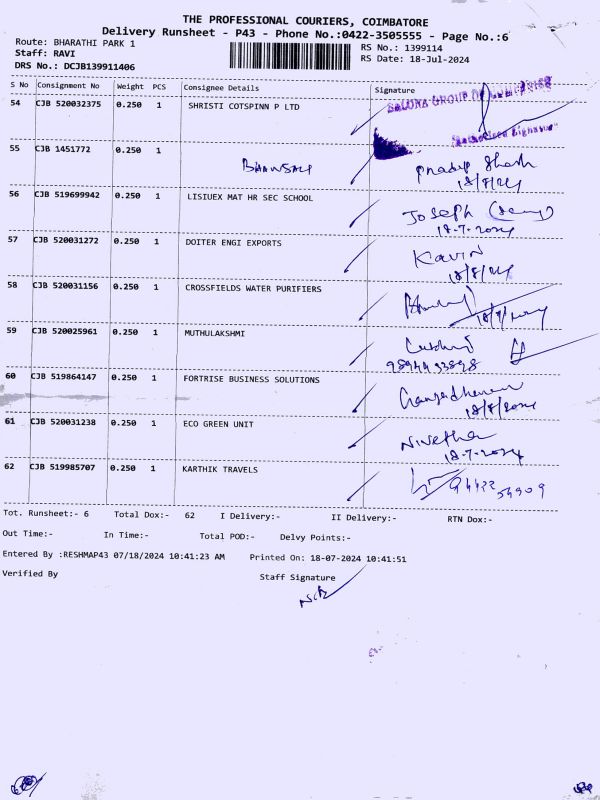 THE PROFESSIONAL COURIERS, COIMBATORE
Delivery Runsheet - P43 - Phone No.:0422-3505555 - Page No.:6
Route: BHARATHI PARK 1
RS No.: 1399114
Staff: RAVI
RS Date: 18-Jul-2024
DRS No.: DCJB139911406
S No Consignment No Weight PCS Consignee Details Signature
54 CJB 520032375 0.250 1 SHRISTI COTSPINN P LTD
55 CJB 1451772 0.250 1 BHANSALI Pradip Shah
56 CJB 519699942 0.250 1 LISIUEX MAT HR SEC SCHOOL Joseph
18-7-2024
57 CJB 520031272 0.250 1 DOITER ENGI EXPORTS Kavin
58 CJB 520031156 0.250 1 CROSSFIELDS WATER PURIFIERS
59 CJB 520025961 0.250 1 MUTHULAKSHMI
60 CJB 519864147 0.250 1 FORTRISE BUSINESS SOLUTIONS
61 CJB 520031238 0.250 1 ECO GREEN UNIT Nivetha
18-7-2024
62 CJB 519985707 0.250 1 KARTHIK TRAVELS
Tot. Runsheet:- 6 Total Dox:- 62 I Delivery:- II Delivery:- RTN Dox:-
Out Time:- In Time:- Total POD:- Delvy Points:-
Entered By :RESHMAP43 07/18/2024 10:41:23 AM Printed On: 18-07-2024 10:41:51
Verified By Staff Signature